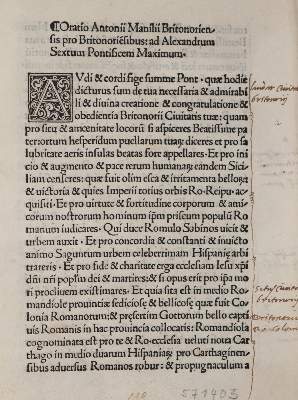 ¶Oratio Antonii Manilii Britonorien-
sis pro Britonoriẽsibus: ad Alexandrum
Sextum Pontificem Maximum.
AVdi & cordi fige summe Pont. quæ hodie
dicturus sum de tua necessaria & admirabi
li & diuina creatione & congratulatione &
obedientia Britonorii Ciuitatis tuæ: quam
pro situ & amœnitate locorũ si aspiceres Beatissime pa
ter hortum hesperidum puellarum tuaȝ diceres et pro sa
lubritate aeris insulas beatas fore appellares. Et pro ini
cio & augmento & pace rerum humanaȝ eandem Sici-
liam censeres: quæ fuit olim esca & irritamenta belloȝ
& uictoria & quies Imperii totius orbis Ro. Reipu. ac
quisiti. Et pro uirtute & fortitudine corporum & ami
corum nostrorum hominum ipm̃ priscum populũ Ro
manum iudicares. Qui duce Romulo Sabinos uicit &
urbem auxit. Et pro concordia & constanti & inuicto
animo Saguntum urbem celeberrimam Hispaniȩ arbi
trareris. Et pro fide & charitate erga ecclesiam Iesu xp̃i
dñi nr̃i popl̃m dei & martires: & si opus eris pro ip̃a mo
ri procliuem existimares. Et quia sita est in medio Ro-
mandiole prouintiæ sediciosȩ & bellicosȩ quæ fuit Co-
lonia Romanotum: & pręsertim Gottorum bello capti
uis Romanis in hac prouincia collocatis: Romandiola
cognominata est pro te & Ro. ecclesia ueluti nota Car
thago in medio duarum Hispaniaȝ pro Carthaginen-
sibus aduersus Romanos robur: & propugnaculum a
571403